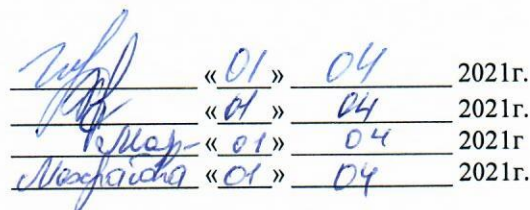 «01» 04 2021г.
«01» 04 2021г.
«01» 04 2021г
«01» 04 2021г.